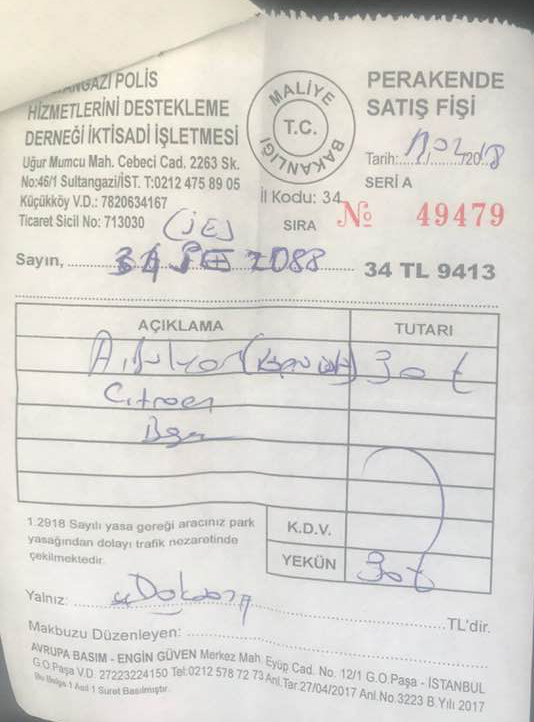 POLİS
HİZMETLERİNİ DESTEKLEME
DERNEĞİ İKTİSADİ İŞLETMESİ
Uğur Mumcu Mah. Cebeci Cad. 2263 Sk.
No:45/1 Sultangazi/İST. T:0212 475 89 05
Küçükköy V.D.: 7820634167
Ticaret Sicil No: 713030
MALİYE
T.C.
BAKANLIĞI
İl Kodu: 34
PERAKENDE
SATIŞ FİŞİ
Tarih: 2018
SERİ A
SIRA № 49479
(JE)
Sayın, 2088 34 TL 9413
AÇIKLAMA TUTARI
30 t
Citroen
1.2918 Sayılı yasa gereği aracınız park
yasağından dolayı trafik nezaretinde
çekilmektedir.
K.D.V.
YEKÜN 30 t
Yalnız: TL'dir.
Makbuzu Düzenleyen:
AVRUPA BASIM - ENGİN GÜVEN Merkez Mah. Eyüp Cad. No. 12/1 G.O.Paşa - İSTANBUL
G.O.Paşa V.D. 27223224150 Tel:0212 578 72 73 Anl.Tar.27/04/2017 Anl.No.3223 B.Yılı 2017
Bu Belge 1 Asıl 1 Suret Basılmıştır.